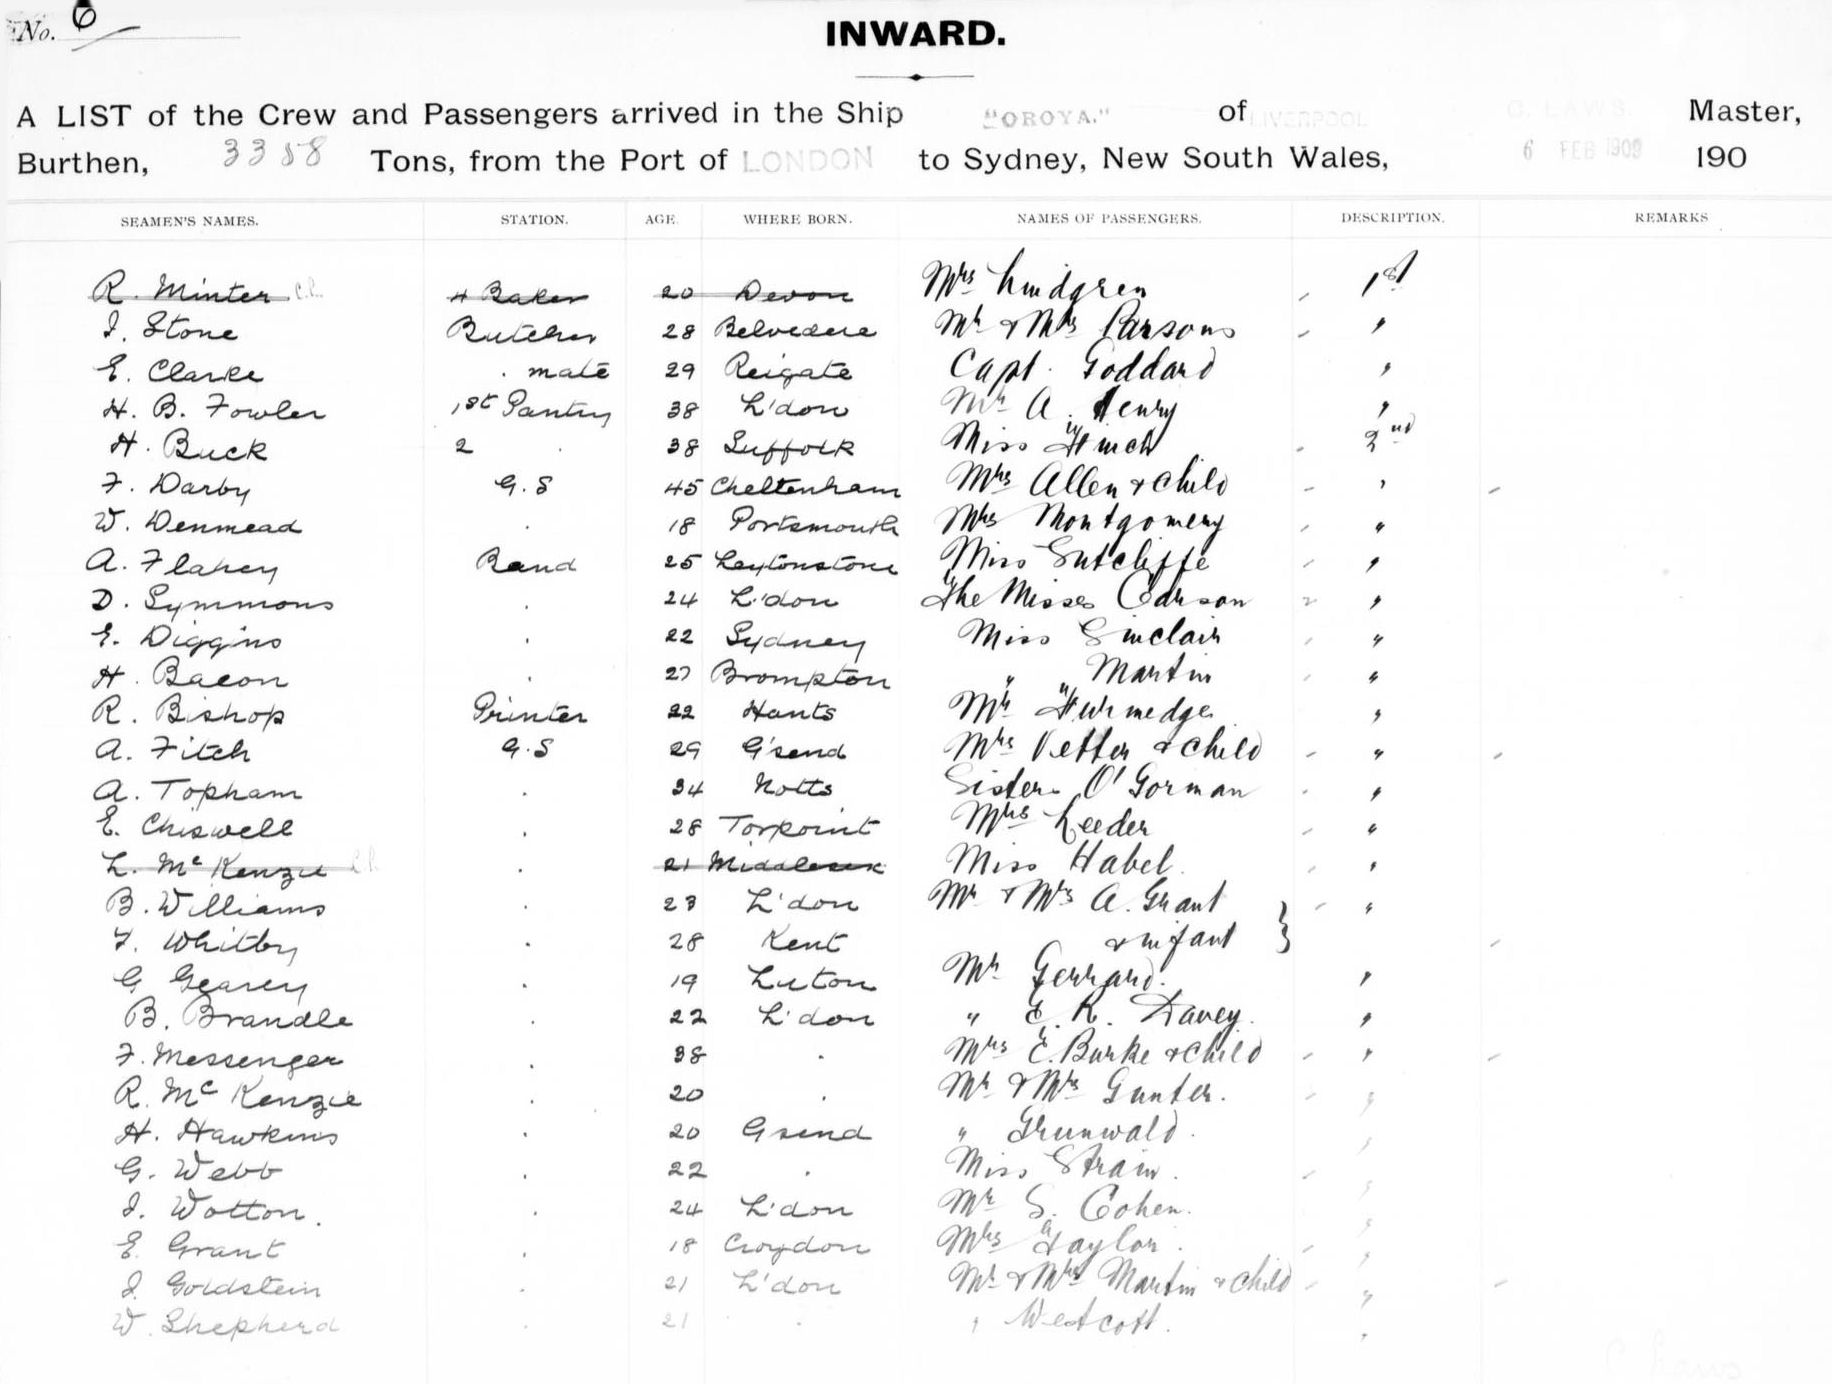 No. 6
INWARD.
A LIST of the Crew and Passengers arrived in the Ship "OROYA." of LIVERPOOL C. LAWS. Master,
Burthen, 3358 Tons, from the Port of LONDON to Sydney, New South Wales, 6 FEB 1909 190
SEAMEN'S NAMES. STATION. AGE. WHERE BORN. NAMES OF PASSENGERS. DESCRIPTION. REMARKS
R. Minter 4 Baker 20 Devon Mrs Lindgren 1st
J. Stone Butcher 28 Belvedere Mr & Mrs Parsons "
E. Clarke . mate 29 Reigate Capt. Goddard "
H. B. Fowler 1st Pantry 38 L'don Mr A. Henry "
H. Buck 2 . 38 Suffolk Miss Finch 2nd
F. Darby G.S 45 Cheltenham Mrs Allen & Child "
W. Denmead . 18 Portsmouth Mrs Montgomery "
A. Flahey Band 25 Leytonstone Miss Sutcliffe "
D. Symmons . 24 L'don The Misses Carson 2 "
E. Diggins . 22 Sydney Miss Sinclair "
H. Bacon . 27 Brompton " Martin "
R. Bishop Printer 22 Hants Mr Furmedge "
A. Fitch G.S 29 G'send Mrs Vetter & Child "
A. Topham . 34 Notts Sister O'Gorman "
E. Chiswell . 28 Torpoint Mrs Leeder "
L. McKenzie . 21 Middlesex Miss Habel "
B. Williams . 23 L'don Mr & Mrs A. Grant "
F. Whitby . 28 Kent & infant
G Gearey . 19 Luton Mr Gerrard. "
B. Brandle . 22 L'don " E. R. Davey. "
F. Messenger . 38 . Mrs E. Burke & Child "
R. McKenzie . 20 . Mr & Mrs Gunter. "
H. Hawkins . 20 Gsend " Grunwald. "
G. Webb . 22 . Miss Strain. "
J. Wotton. . 24 L'don Mr S. Cohen. "
E. Grant . 18 Croydon Mrs Taylor. "
J. Goldstein . 21 L'don Mr & Mrs Martin & Child "
W. Shepherd . 21 . " Westcott. "
C Laws